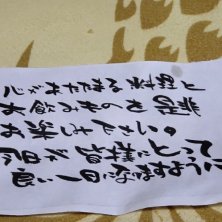 心があたたまる料理と
お飲みものを是非
お楽しみ下さい。
今日が皆様にとって
良い一日になりますように